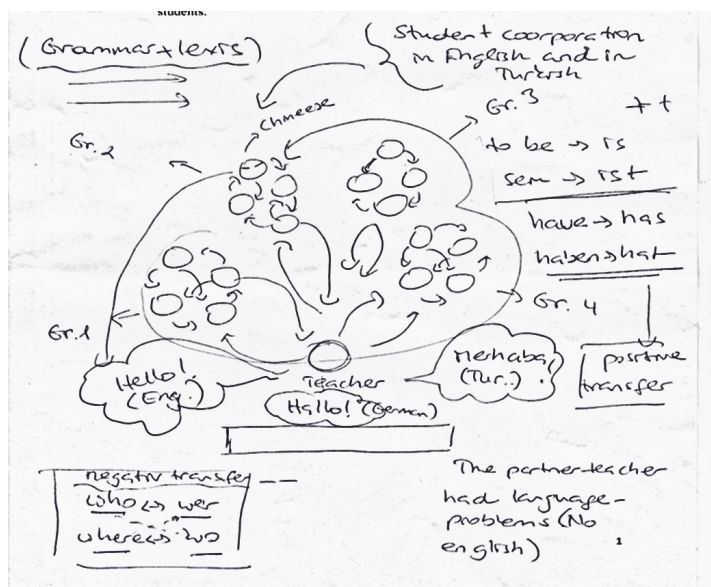 students.
(Grammar + lexis)
Student coorporation
in English and in
Turkish
Chineese
Gr. 3
++
Gr. 2
to be → is
sein → ist
have → has
haben → hat
Gr. 4
Gr. 1
Hello!
(Eng.)
Teacher
Hallo! (German)
Merhaba!
(Tur..)
positive
transfer
negativ transfer
who ↔ wer
where ↔ wo
The partner-teacher
had language-
problems (No
english)
1